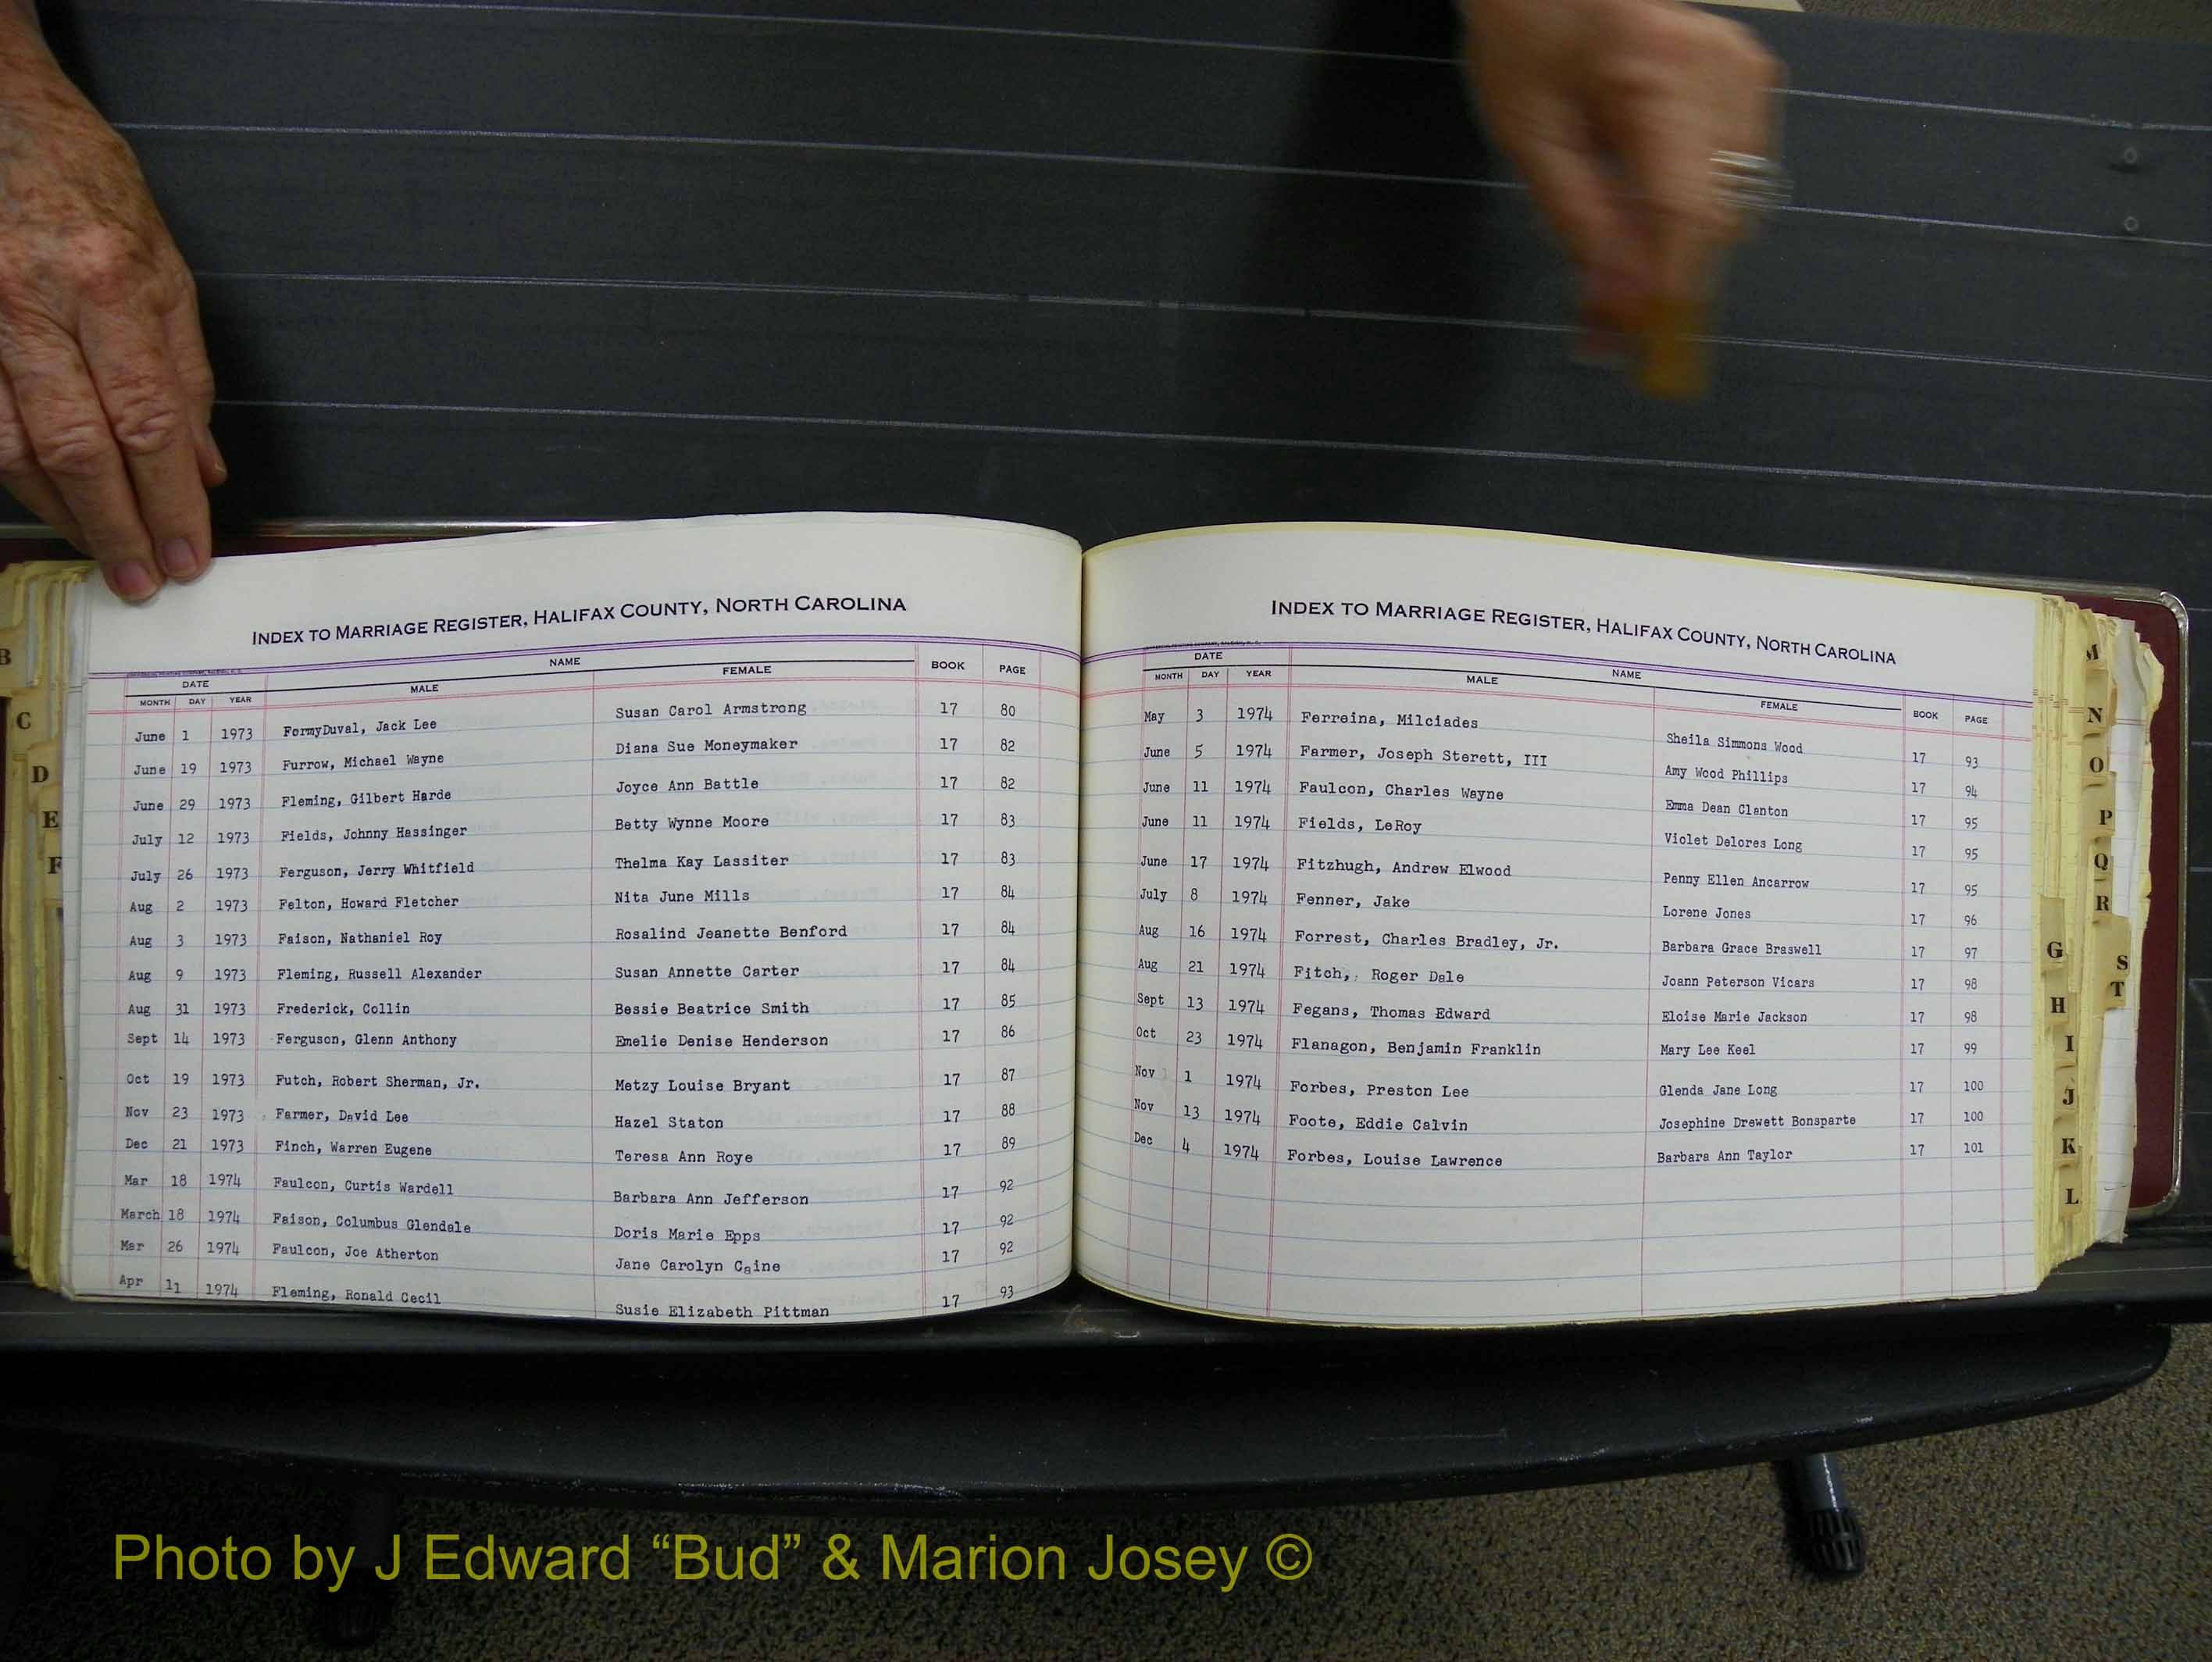 INDEX TO MARRIAGE REGISTER, HALIFAX COUNTY, NORTH CAROLINA
DATE NAME BOOK PAGE
MONTH DAY YEAR MALE FEMALE
June 1 1973 FormyDuval, Jack Lee Susan Carol Armstrong 17 80
June 19 1973 Furrow, Michael Wayne Diana Sue Moneymaker 17 82
June 29 1973 Fleming, Gilbert Harde Joyce Ann Battle 17 82
July 12 1973 Fields, Johnny Hassinger Betty Wynne Moore 17 83
July 26 1973 Ferguson, Jerry Whitfield Thelma Kay Lassiter 17 83
Aug 2 1973 Felton, Howard Fletcher Nita June Mills 17 84
Aug 3 1973 Faison, Nathaniel Roy Rosalind Jeanette Benford 17 84
Aug 9 1973 Fleming, Russell Alexander Susan Annette Carter 17 84
Aug 31 1973 Frederick, Collin Bessie Beatrice Smith 17 85
Sept 14 1973 Ferguson, Glenn Anthony Emelie Denise Henderson 17 86
Oct 19 1973 Futch, Robert Sherman, Jr. Metzy Louise Bryant 17 87
Nov 23 1973 Farmer, David Lee Hazel Staton 17 88
Dec 21 1973 Finch, Warren Eugene Teresa Ann Roye 17 89
Mar 18 1974 Faulcon, Curtis Wardell Barbara Ann Jefferson 17 92
March 18 1974 Faison, Columbus Glendale Doris Marie Epps 17 92
Mar 26 1974 Faulcon, Joe Atherton Jane Carolyn Caine 17 92
Apr 11 1974 Fleming, Ronald Cecil Susie Elizabeth Pittman 17 93
INDEX TO MARRIAGE REGISTER, HALIFAX COUNTY, NORTH CAROLINA
DATE NAME
MONTH DAY YEAR MALE FEMALE BOOK PAGE
May 3 1974 Ferreina, Milciades Sheila Simmons Wood 17 93
June 5 1974 Farmer, Joseph Sterett, III Amy Wood Phillips 17 94
June 11 1974 Faulcon, Charles Wayne Emma Dean Clanton 17 95
June 11 1974 Fields, LeRoy Violet Delores Long 17 95
June 17 1974 Fitzhugh, Andrew Elwood Penny Ellen Ancarrow 17 95
July 8 1974 Fenner, Jake Lorene Jones 17 96
Aug 16 1974 Forrest, Charles Bradley, Jr. Barbara Grace Braswell 17 97
Aug 21 1974 Fitch, Roger Dale Joann Peterson Vicars 17 98
Sept 13 1974 Fegans, Thomas Edward Eloise Marie Jackson 17 98
Oct 23 1974 Flanagon, Benjamin Franklin Mary Lee Keel 17 99
Nov 1 1974 Forbes, Preston Lee Glenda Jane Long 17 100
Nov 13 1974 Foote, Eddie Calvin Josephine Drewett Bonsparte 17 100
Dec 4 1974 Forbes, Louise Lawrence Barbara Ann Taylor 17 101
B
C
D
E
F
G
H
I
J
K
L
M
N
O
P
Q
R
S
T
Photo by J Edward “Bud” & Marion Josey ©